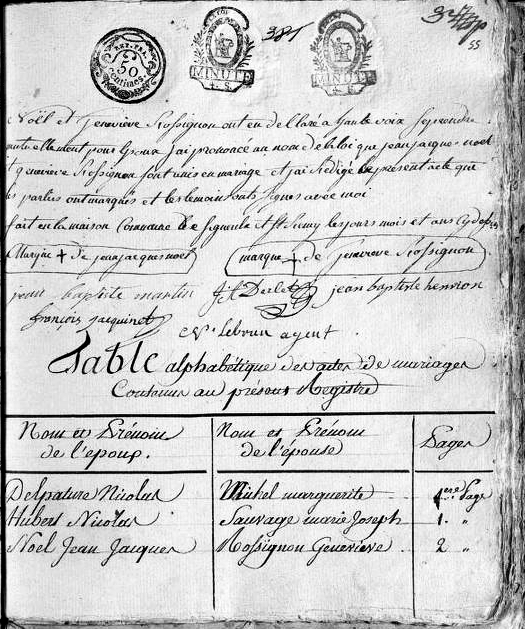 REP. FRA.
50
centimes.
MINUTE
381
MINUTE
55
Noël et Genevieve Rossignon ont en declaré a haute voix se prendre
mutuellement pour Epoux j'ai prononcé au nom de la loi que jean jacques noel
et genevieve Rossignon sont unis en mariage et j'ai Redigé le present acte que
les parties ont marqués et les temoins ont signes avec moi
fait en la maison Commune de et les jours mois et ans
Marque + de jean jacques noel
marque + de Genevieve Rossignon
jean baptiste martin J A jean baptiste henrion
francois jacquinet
Lebrun agent.
Table alphabétique des actes de mariages
Contenus au présent Registre
Nom et Prénom
de l'epoux.
Nom et Prénom
de l'épouse
Pages
Delpature Nicolas Michel marguerite 1ere Page
Hubert Nicolas Sauvage marie Joseph 1. "
Noel Jean Jacques Rossignon Genevieve 2 "